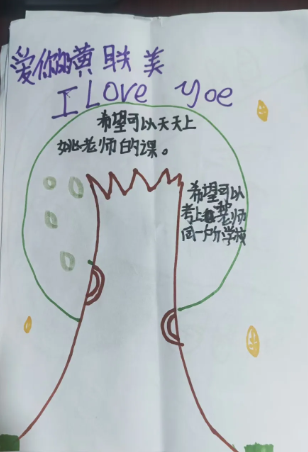 爱你的黄联美
I Love yoe
希望可以天天上
姚老师的课。
希望可以
考上老师
同一所学校